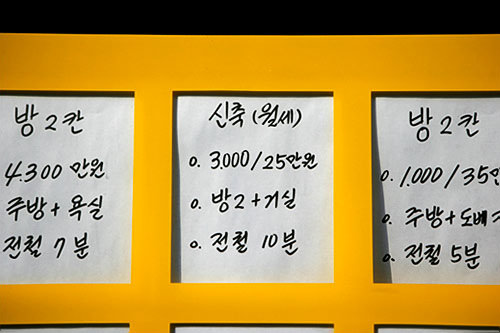 방 2칸
4.300 만원
주방 + 욕실
전철 7 분
신축 (월세)
o. 3.000 / 25만원
o. 방2 + 거실
o. 전철 10 분
방 2칸
o. 1.000 / 35만
o. 주방 + 도배
o. 전철 5분